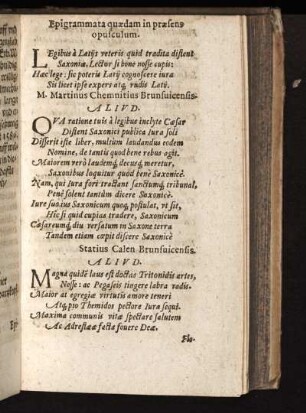 Epigrammata quædam in præsens
opusculum.
LEgibus à Latijs veteris quid tradita distent
Saxoniæ, Lector si bone nosse cupis:
Hæc lege: sic poteris Latij cognoscere iura
Sis licet ipse expers atq; rudis Latij.
M. Martinus Chemnitius Brunsuicensis.
ALIVD.
QVA ratione tuis à legibus inclyte Cæsar
Distent Saxonici publica Iura soli
Disserit iste liber, multùm laudandus eodem
Nomine, de tantis quod bene rebus agit.
Maiorem verò laudemq; decusq; meretur,
Saxonibus loquitur quod benè Saxonicè.
Nam, qui Iura fori tractant sanctumq; tribunal,
Penè solent tantùm dicere Saxonicè.
Iure suo ius Saxonicum quoq; postulat, vt sit,
Hîc si quid cupias tradere, Saxonicum
Cæsareumq; diu versatum in Saxone terra
Tandem etiam cœpit discere Saxonicè
Statius Calen Brunsuicensis.
ALIVD.
Magna quidē laus est doctas Tritonidis artes,
Nosse: ac Pegaseis tingere labra vadis.
Maior at egregiæ virtutis amore teneri
Atq; pio Themidos pectore Iura sequi.
Maxima communis vitæ spectare salutem
Ac Adrestææ facta fouere Deæ.